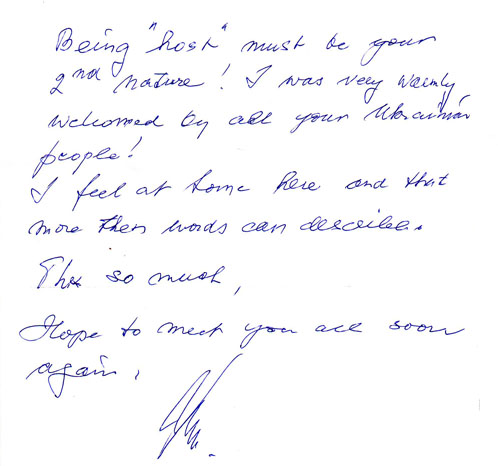 Being "host" must be your
2nd nature! I was very warmly
welcomed by all your Ukrainian
people!
I feel at home here and that
more then words can describe.
Thx so much,
Hope to meet you all soon
again.